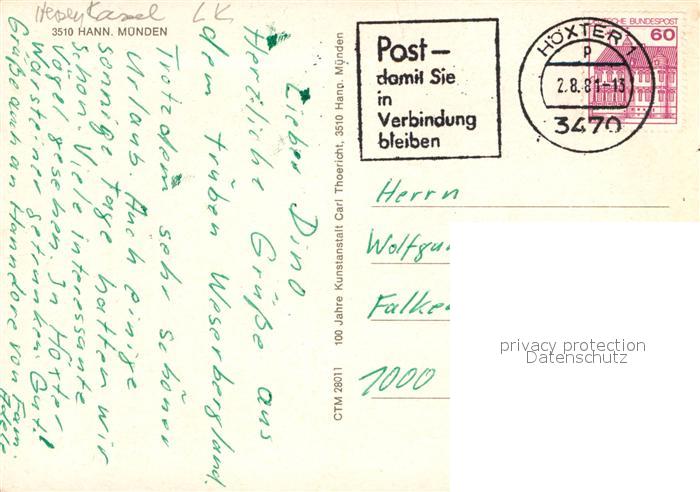 Hessen Kassel LK
3510 HANN. MÜNDEN
Lieber Dino.
Herzliche Grüße aus
dem trüben Weserbergland.
Trotzdem sehr schöner
Urlaub. Auch einige
sonnige Tage hatten wir
schon. Viele interessante
Vögel gesehen. In Höxter
Warsteiner getrunken. Gut!
Grüße auch an Hannelore von Fam.
CTM 28011 100 Jahre Kunstanstalt Carl Thoericht, 3510 Hann. Münden
Post–
damit Sie
in
Verbindung
bleiben
HÖXTER 1
P
2.8.81-13
3470
DEUTSCHE BUNDESPOST
60
Herrn
Wolfga
Falke
1000
privacy protection
Datenschutz